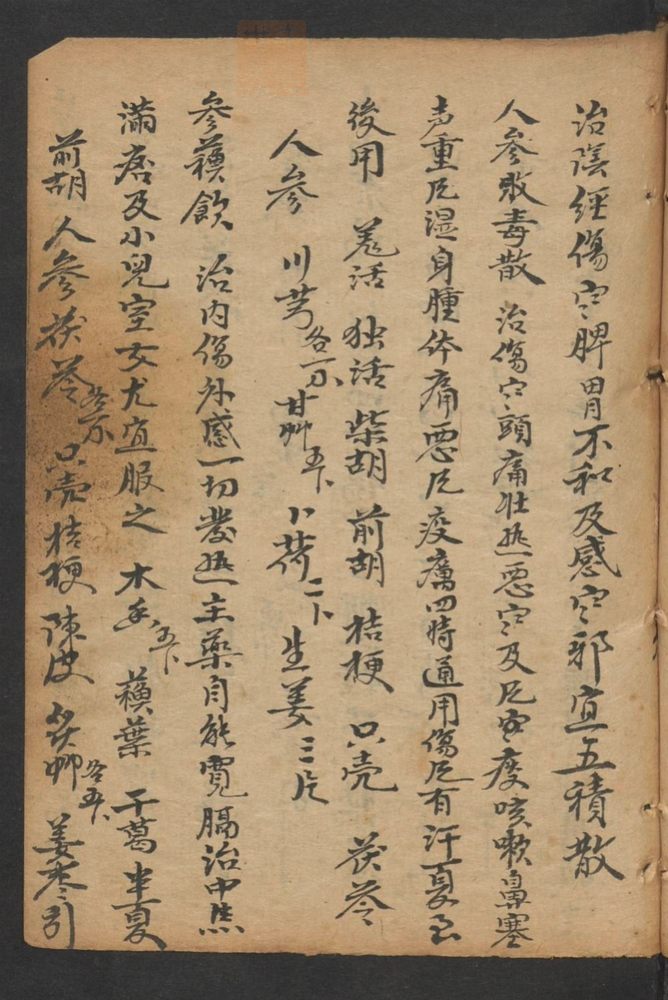 治陰經傷寒脾胃不和及感寒邪宜五積散
人參敗毒散 治傷寒頭痛壯热惡寒及风寒痰咳嗽鼻塞
声重风湿身腫体痛惡风疫癘四時通用傷风有汗夏至
後用 羌活 独活 柴胡 前胡 桔梗 只壳 茯苓
人參 川芎各 甘艸 卜荷二卜 生姜三片
參蘓飲 治内傷外感一切發热主藥自能寬膈治中焦
滿痞及小兒室女尤宜服之 木香 蘓葉 干葛 半夏
前胡 人參 茯苓 只壳 桔梗 陳皮 艸各 姜棗引